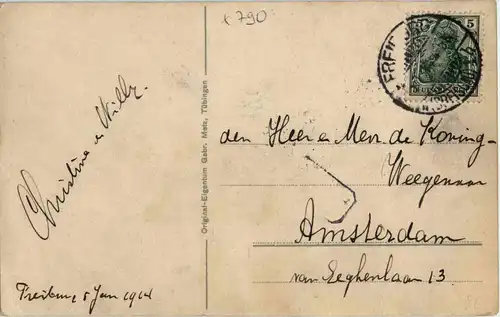 x 790
5
FREIBURG
Christine e Willy.
Original-Eigentum Gebr. Metz, Tübingen
den Heer e Mevr. de Koning-
Weegenaar
Amsterdam
van Eeghenlaan 13
Freiburg 5 Jan 1914